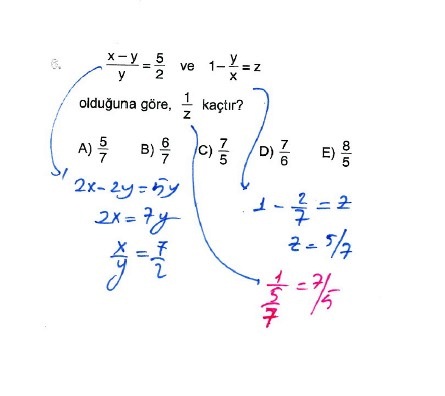 (x-y)/y = 5/2 ve 1 - y/x = z
olduğuna göre, 1/z kaçtır?
A) 5/7 B) 6/7 C) 7/5 D) 7/6 E) 8/5
2x - 2y = 5y
2x = 7y
x/y = 7/2
1 - 2/7 = z
z = 5/7
1/(5/7) = 7/5